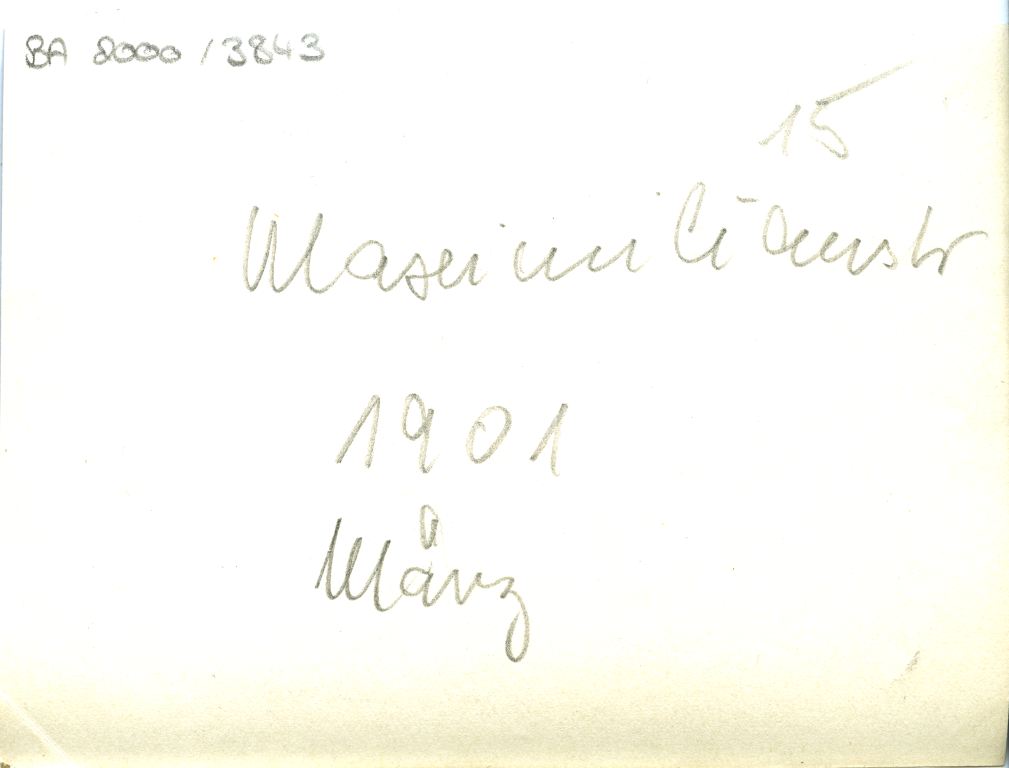 BA 2000 / 3843
15
Maximilianstr
1901
März